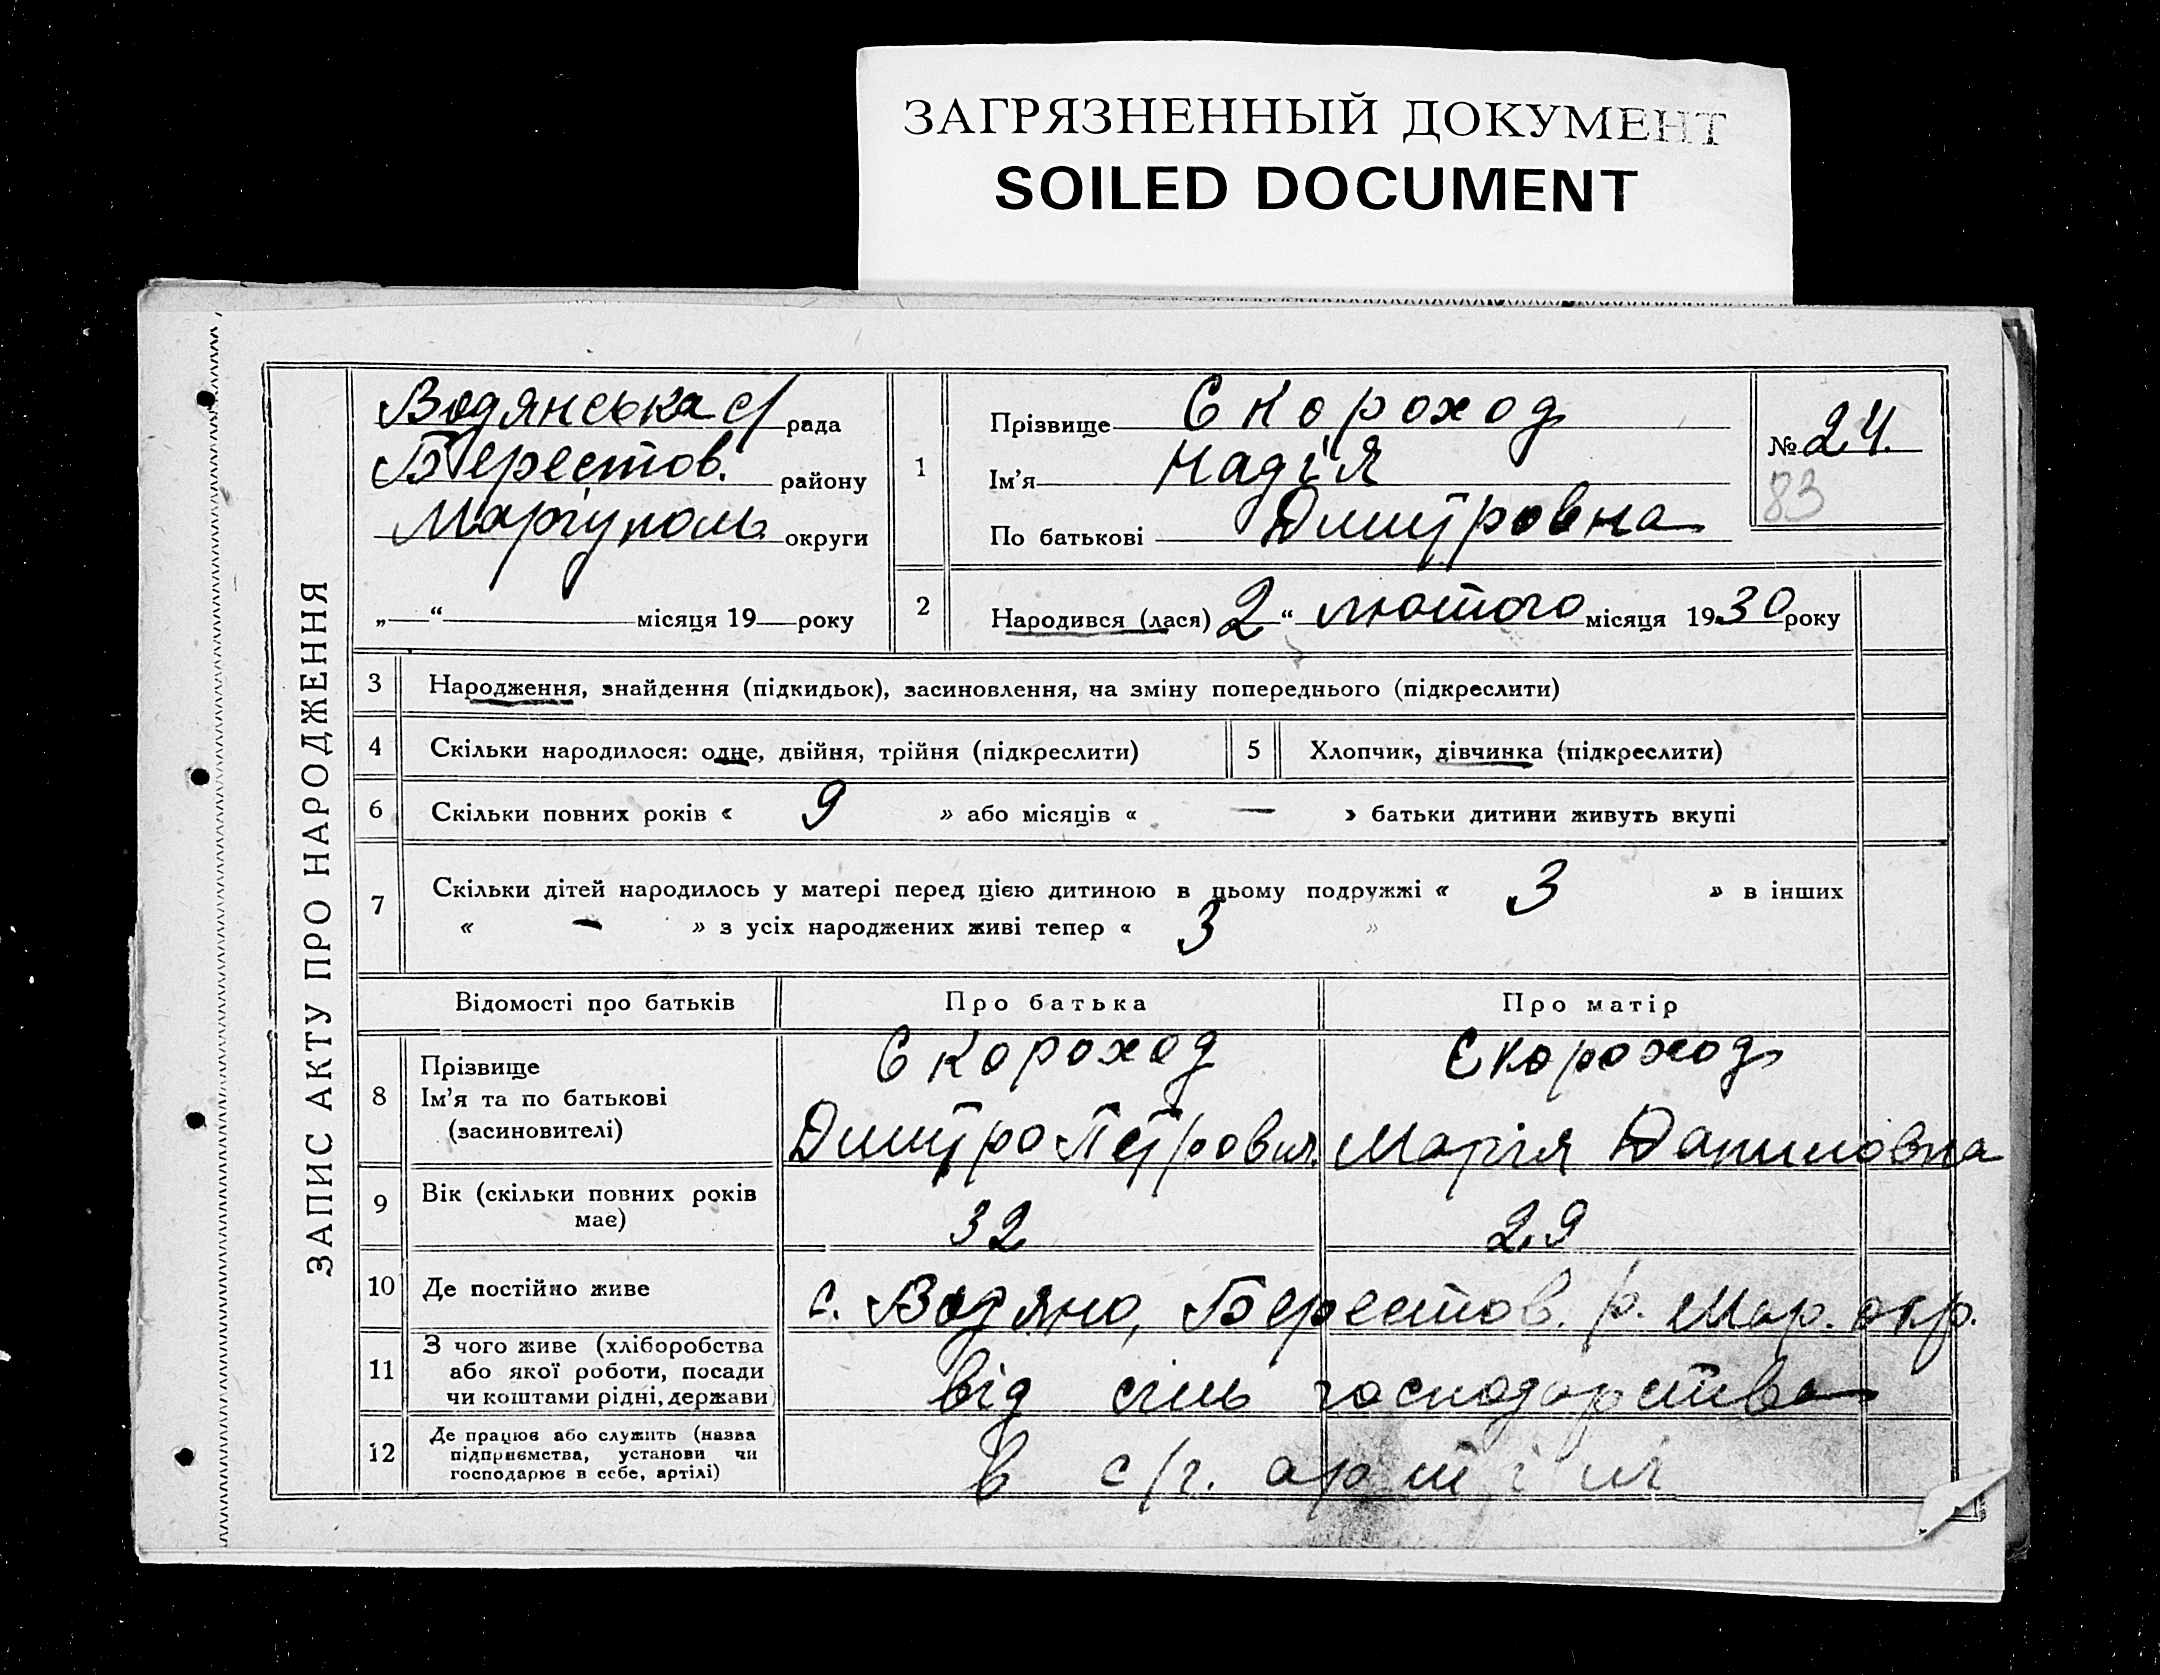 ЗАГРЯЗНЕННЫЙ ДОКУМЕНТ
SOILED DOCUMENT
ЗАПИС АКТУ ПРО НАРОДЖЕННЯ
Водянська с/рада
Берестов. району
Маріуполь. округи
„—“ місяця 19—року
1
Прізвище Скороход
Ім'я Надія
По батькові Дмитровна
№ 24.
83
2
Народився (лася) 2 “ лютого місяця 1930 року
3 Народження, знайдення (підкидьок), засиновлення, на зміну попереднього (підкреслити)
4 Скільки народилося: одне, двійня, трійня (підкреслити)
5 Хлопчик, дівчинка (підкреслити)
6 Скільки повних років « 9 » або місяців « — » батьки дитини живуть вкупі
7 Скільки дітей народилось у матері перед цією дитиною в цьому подружжі « 3 » в інших
« – » з усіх народжених живі тепер « 3 »
Відомості про батьків Про батька Про матір
8 Прізвище
Ім'я та по батькові
(засиновителі)
Скороход
Дмитро Петрович.
Скороход
Марія Даниловна
9 Вік (скільки повних років
має)
32 29
10 Де постійно живе с. Водяно, Берестов. р. Мар. окр.
11 З чого живе (хліборобства
або якої роботи, посади
чи коштами рідні, держави)
від сіль господарства
12 Де працює або служить (назва
підприємства, установи чи
господарює в себе, артілі)
в с/г. артілі